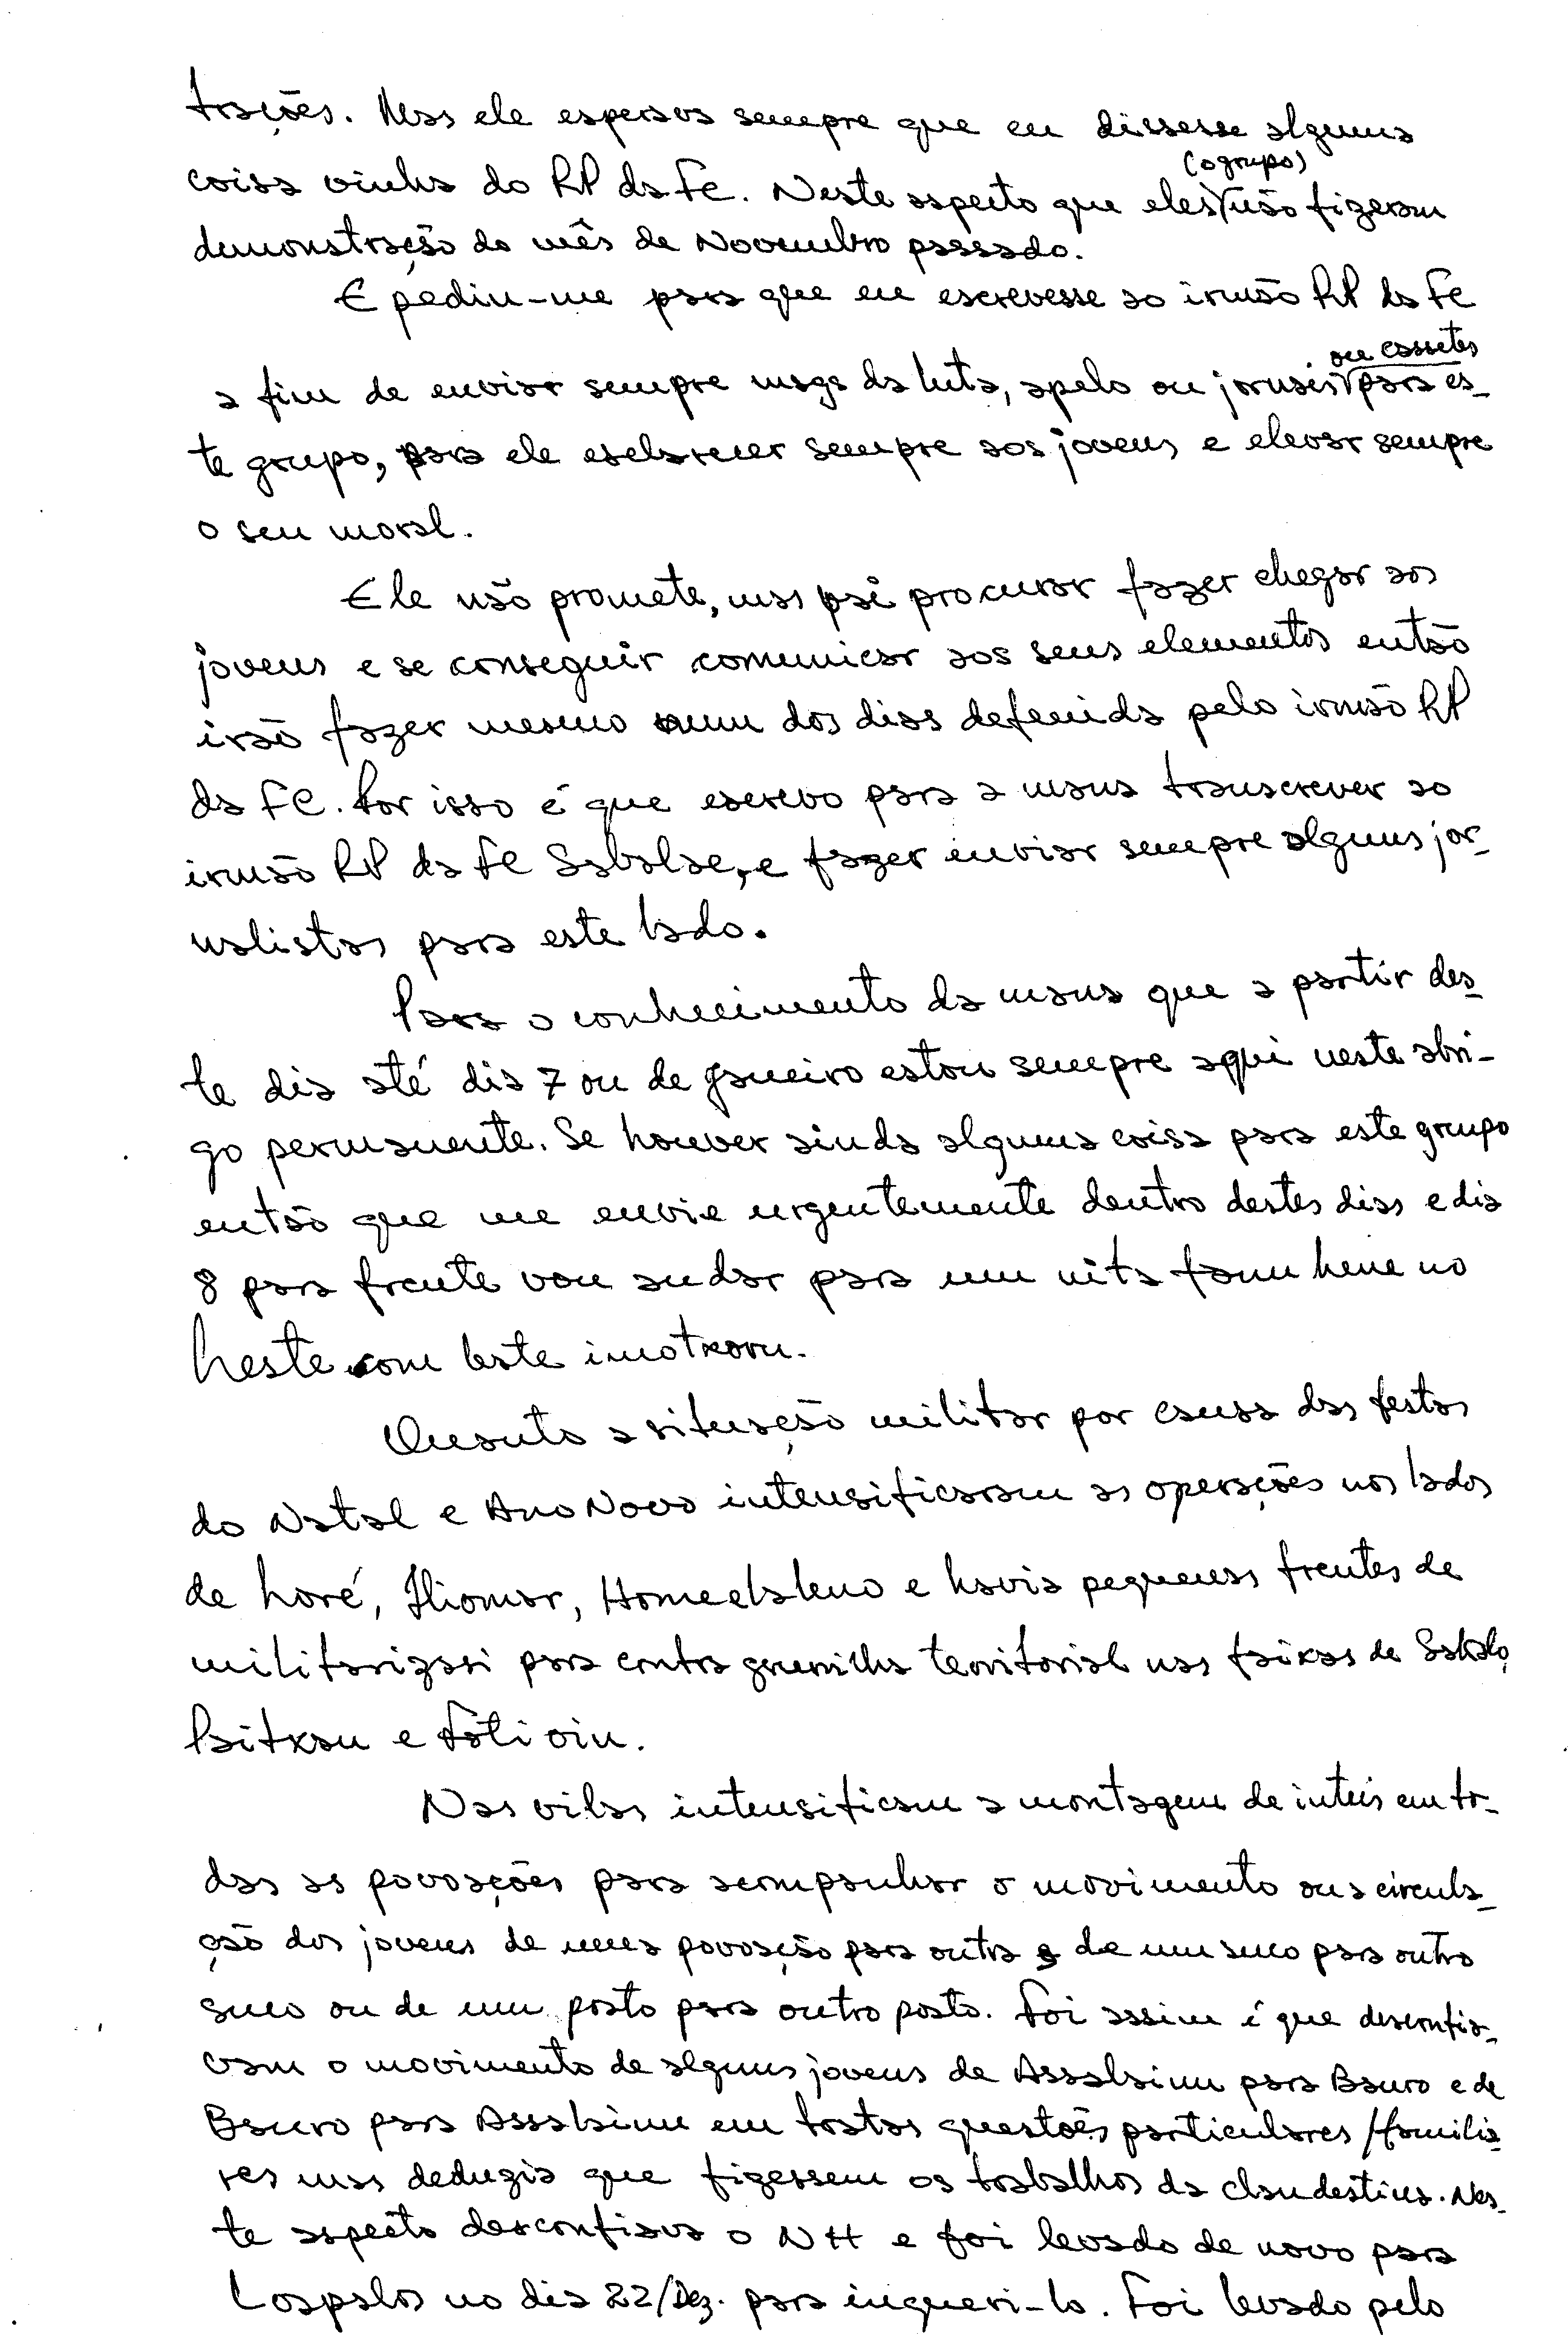 trações. Mas ele esperava sempre que eu dissesse alguma
(o grupo)
coisa vinha do RP da FC. Neste aspecto que eles não fizeram
demonstração do mês de Novembro passado.
E pediu-me para que eu escrevesse ao irmão RP da FC
ou cassetes
a fim de enviar sempre msgs da luta, apelo ou jornais para es-
te grupo, para ele esclarecer sempre aos jovens e elevar sempre
o seu moral.
Ele não promete, mas vai procurar fazer chegar aos
jovens e se conseguir comunicar aos seus elementos então
irão fazer mesmo num dos dias defenida pelo irmão RP
da FC. Por isso é que escrevo para a mana transcrever ao
irmão RP da FC Sabalae, e fazer enviar sempre alguns jor-
nalistas para este lado.
Para o conhecimento da mana que a partir des-
te dia até dia 7 ou de Janeiro estou sempre aqui neste abri-
go permanente. Se houver ainda alguma coisa para este grupo
então que me envie urgentemente dentro destes dias e dia
8 para frente vou andar para
Leste com
Quanto a situação militar por causa das festas
do Natal e Ano Novo intensificaram as operações nos lados
de Loré, Iliomar, e havia pequenas frentes de
para contra guerrilha territorial nas faixas de
Paitxau e
Nas vilas intensificam a montagem de inteis em to-
das as povoações para acompanhar o movimento ou a circula-
ção dos jovens de uma povoação para outra e de um suco para outro
suco ou de um posto para outro posto. Foi assim é que desconfia-
vam o movimento de alguns jovens de Assalainu para Bauro e de
Bauro para Assalainu em tratar questões particulares / familia-
res mas deduzia que fizessem os trabalhos da clandestina. Nes-
te aspecto desconfiava o NH e foi levado de novo para
Lospalos no dia 22/Dez. para inqueri-lo. Foi levado pelo